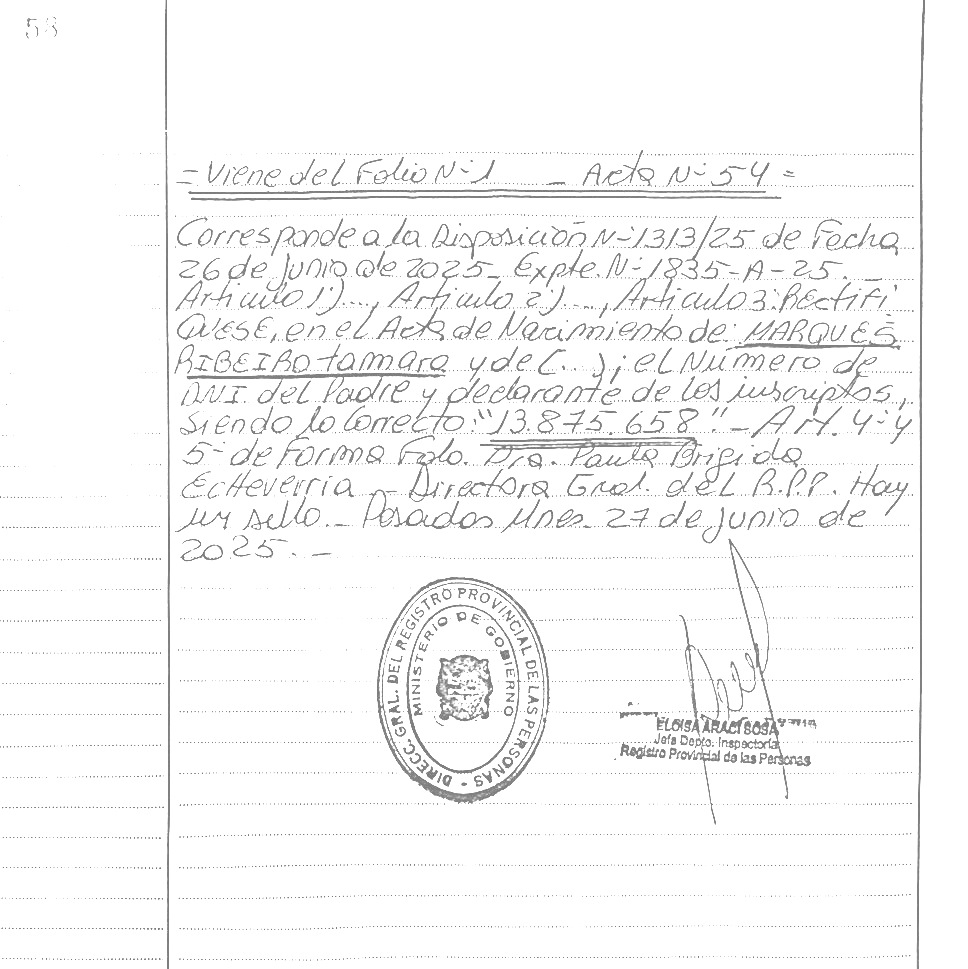 58
= Viene del Folio Nº 1 _ Acta Nº 54 =
Corresponde a la Disposición Nº 1313/25 de Fecha
26 de Junio de 2025_ Expte. Nº 1835-A-25._
Artículo 1º)..., Artículo 2º)..., Artículo 3: RECTIFI
QUESE, en el Acta de Nacimiento de: MARQUES
RIBEIRO tamara y de (...); el Número de
DNI del Padre y declarante de los inscriptos,
siendo lo correcto: "13.875.658"_ Art. 4º y
5º de Forma Fdo. Dra. Paula Brigida
Echeverria _ Directora Gral. del R.P.P. Hay
un sello._ Posadas Mnes. 27 de Junio de
2025._
DIRECC. GRAL. DEL REGISTRO PROVINCIAL DE LAS PERSONAS -
MINISTERIO DE GOBIERNO
ELOISA ARACI SOSA
Jefa Depto. Inspectoría
Registro Provincial de las Personas